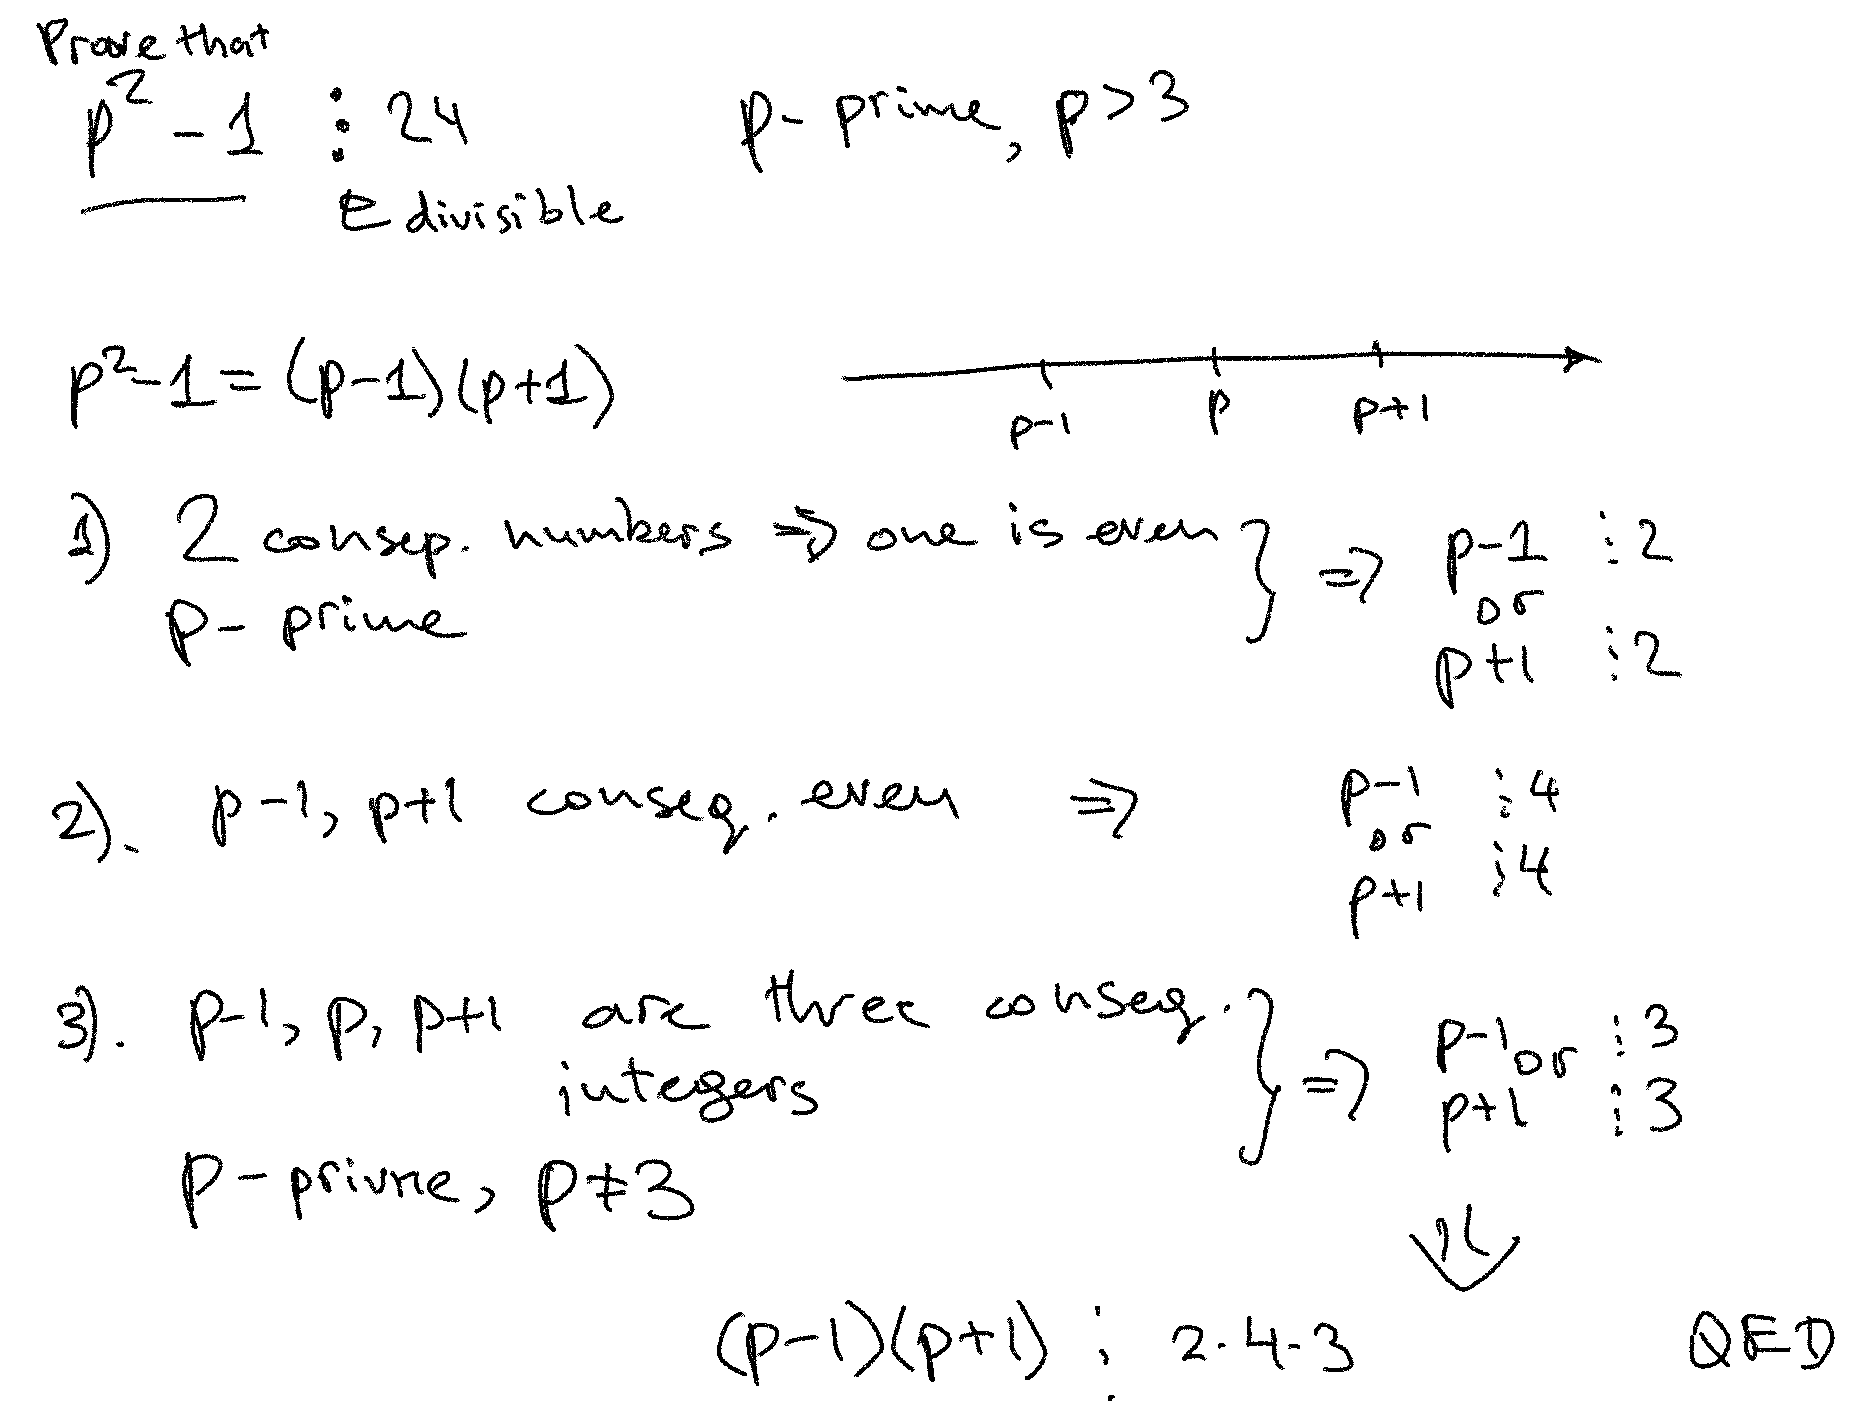 Prove that
p² - 1 ⋮ 24 p - prime, p > 3
divisible
p² - 1 = (p-1)(p+1)
p-1 p p+1
1) 2 consep. numbers ⇒ one is even } ⇒ p-1 ⋮ 2
p - prime or
p+1 ⋮ 2
2). p-1, p+1 conseq. even ⇒ p-1 ⋮ 4
or
p+1 ⋮ 4
3). p-1, p, p+1 are three conseq. } ⇒ p-1 or ⋮ 3
integers p+1 ⋮ 3
p - prime, p ≠ 3
⇓
(p-1)(p+1) ⋮ 2·4·3 QED